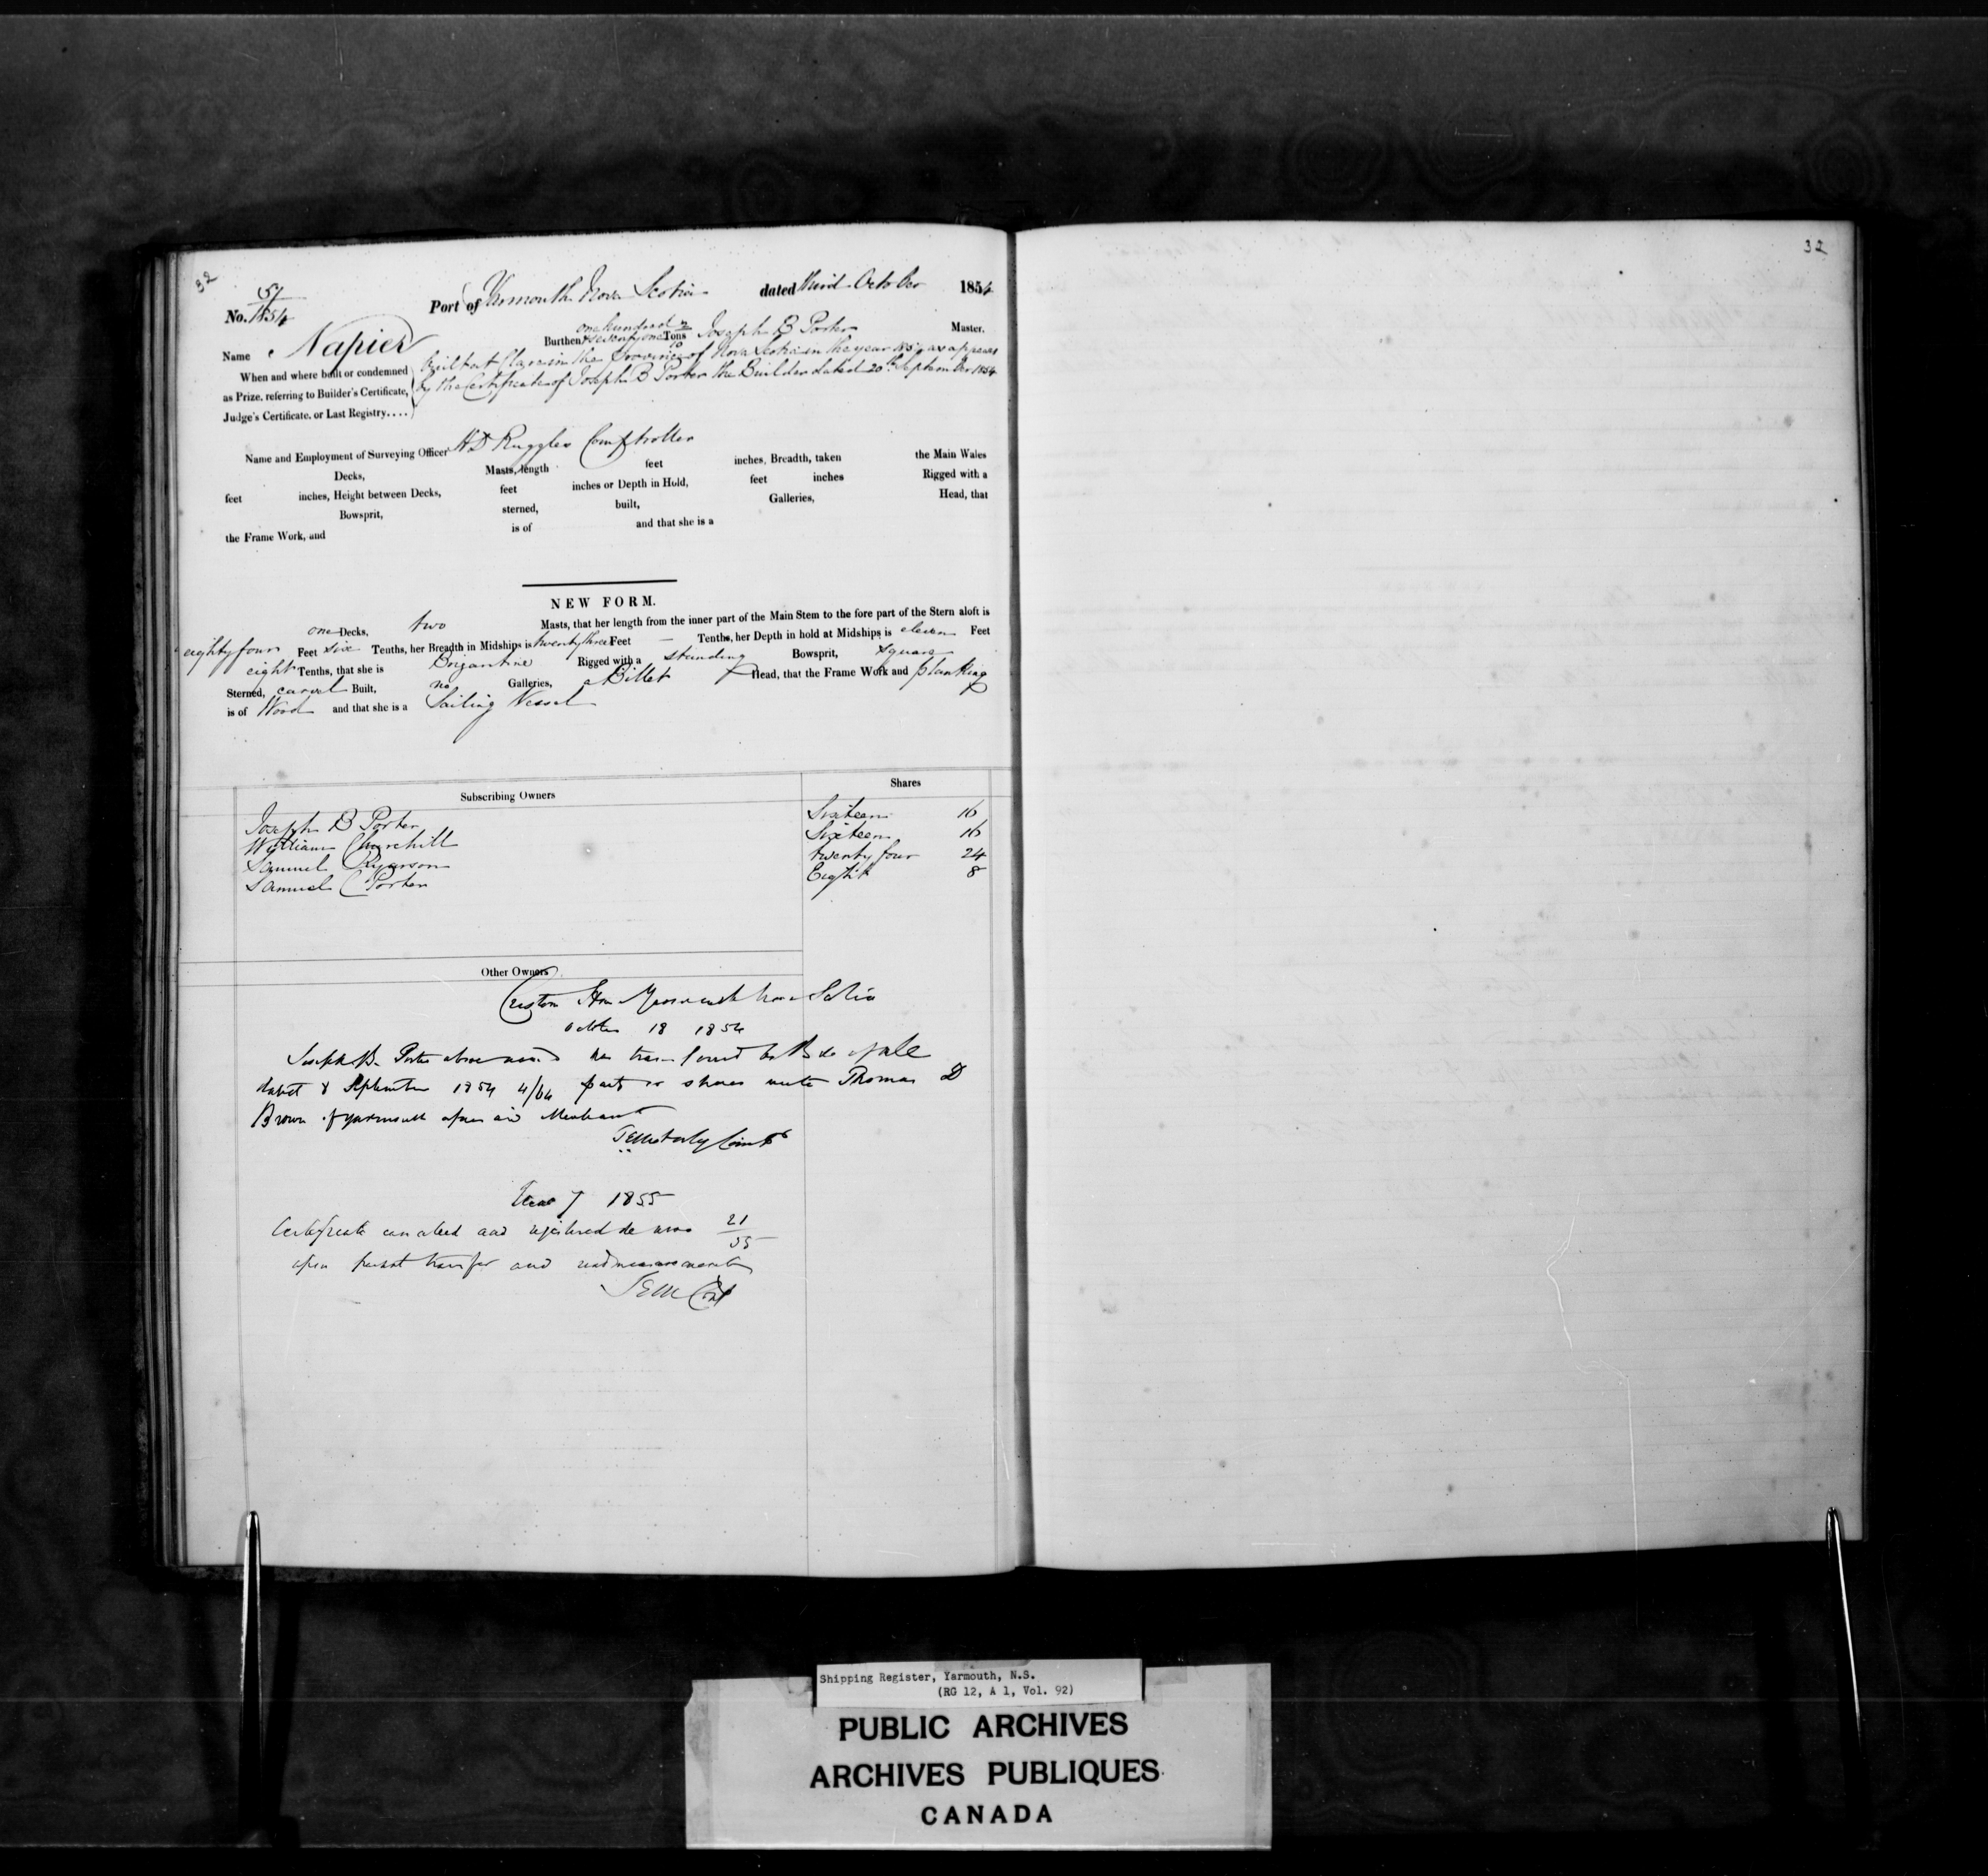 32
32
No. 51/1854 Port of Yarmouth Nova Scotia dated third October 1854
Name Napier Burthen one hundred & seventy one Tons Joseph B Porter Master.
When and where built or condemned as Prize, referring to Builder's Certificate, Judge's Certificate, or Last Registry....
Built at Clare in the Province of Nova Scotia in the year 1854 as appears
by the Certificate of Joseph B Porter the Builder dated 20th September 1854
Name and Employment of Surveying Officer H D Ruggles Comptroller
Decks, Masts, length feet inches, Breadth, taken the Main Wales
feet inches, Height between Decks, feet inches or Depth in Hold, feet inches Rigged with a
Bowsprit, sterned, built, Galleries, Head, that
the Frame Work, and is of and that she is a
NEW FORM.
one Decks, two Masts, that her length from the inner part of the Main Stem to the fore part of the Stern aloft is
eighty four Feet six Tenths, her Breadth in Midships is twenty three Feet — Tenths, her Depth in hold at Midships is eleven Feet
eight Tenths, that she is Brigantine Rigged with a standing Bowsprit, square
Sterned, carvel Built, no Galleries, a Billet Head, that the Frame Work and planking
is of Wood and that she is a Sailing Vessel
Subscribing Owners Shares
Joseph B Porter Sixteen 16
William Churchill Sixteen 16
Samuel Ryerson twenty four 24
Samuel Porter Eight 8
Other Owners
Custom Yarmouth Nova Scotia
October 18 1854
Joseph B. Porter above named has transferred by Bill of sale
dated 8 September 1854 4/64 parts or shares unto Thomas D
Brown of Yarmouth aforesaid Merchant
7 1855
Certificate cancelled and registered de novo 21/55
upon transfer and readmeasurement
Shipping Register, Yarmouth, N.S.
(RG 12, A 1, Vol. 92)
PUBLIC ARCHIVES
ARCHIVES PUBLIQUES
CANADA